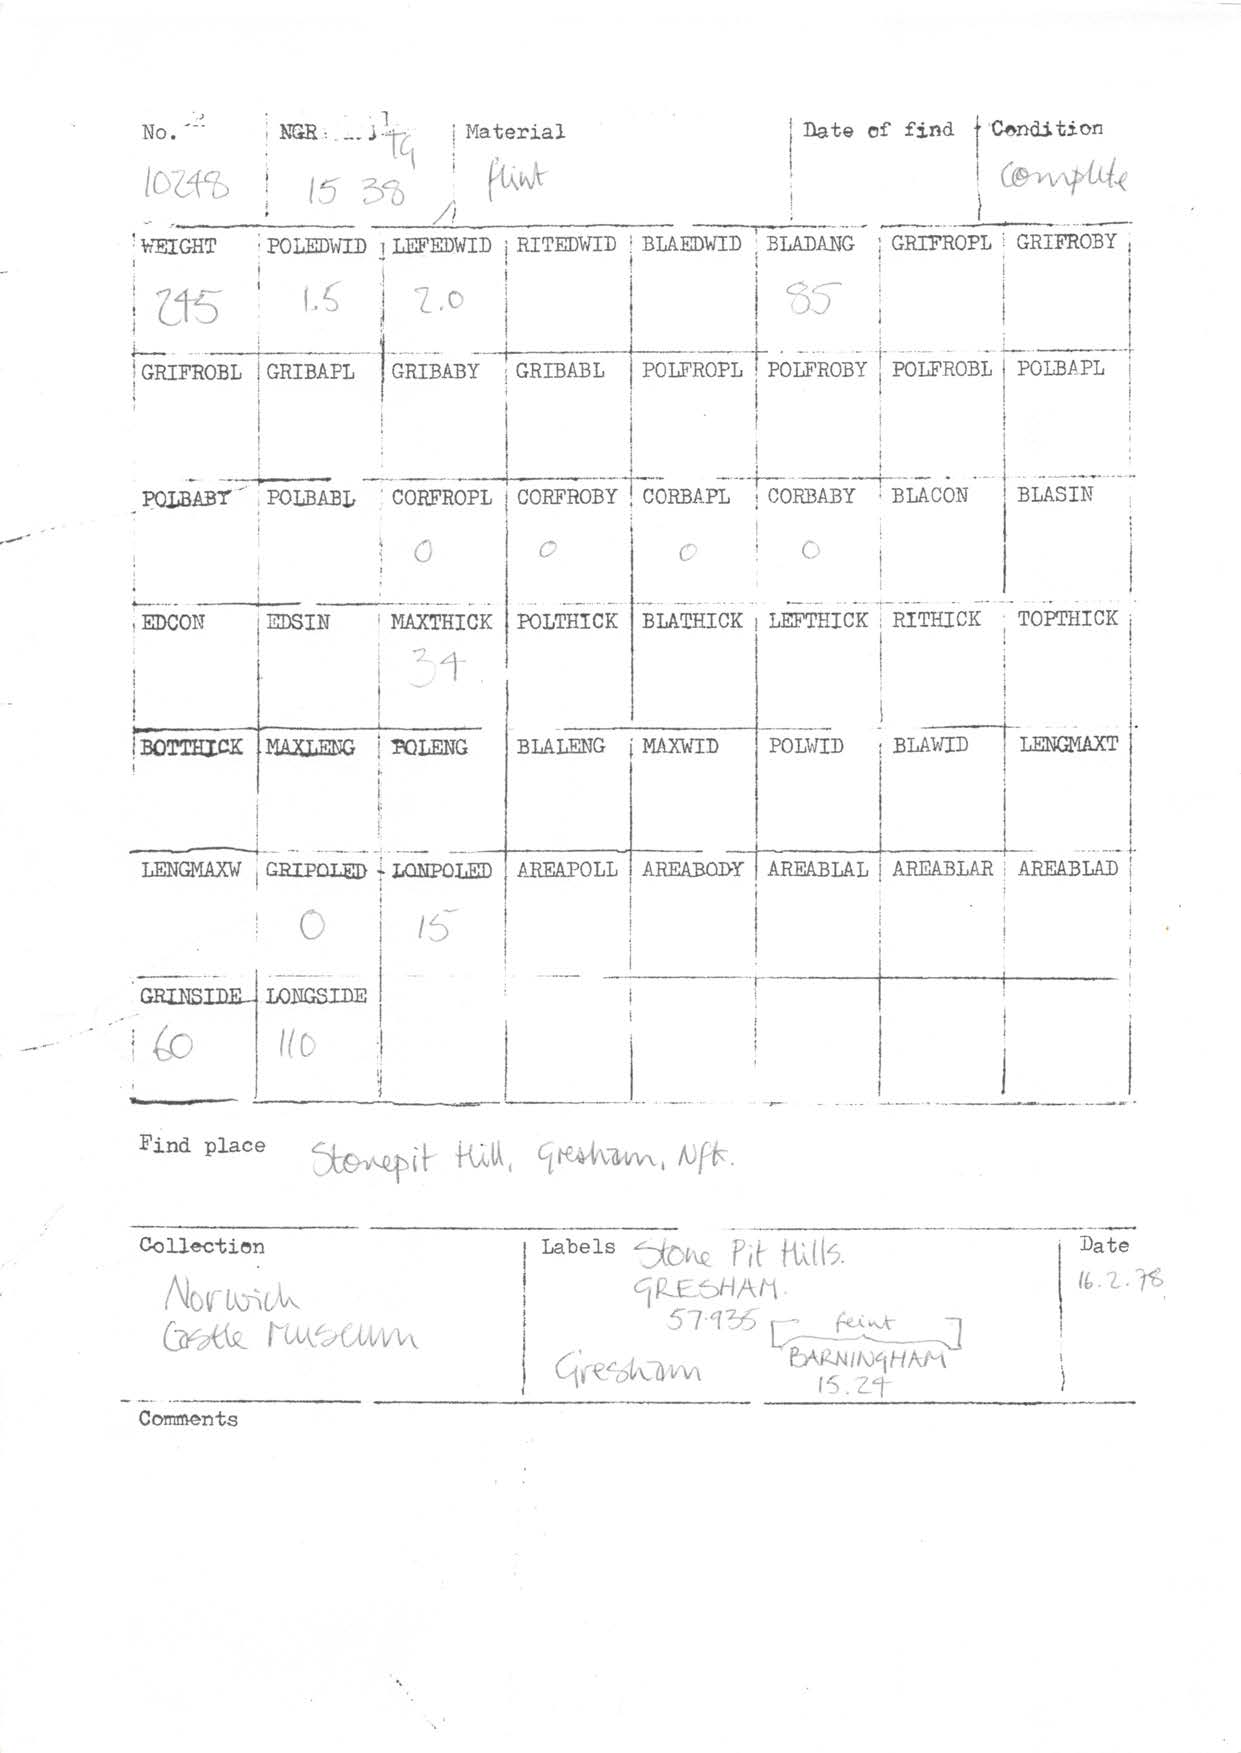 No. NGR Material Date of find Condition
TG
10248 15 38 flint complete
WEIGHT POLEDWID LEFEDWID RITEDWID BLAEDWID BLADANG GRIFROPL GRIFROBY
245 1.5 2.0 85
GRIFROBL GRIBAPL GRIBABY GRIBABL POLFROPL POLFROBY POLFROBL POLBAPL
POLBABY POLBABL CORFROPL CORFROBY CORBAPL CORBABY BLACON BLASIN
0 0 0 0
EDCON EDSIN MAXTHICK POLTHICK BLATHICK LEFTHICK RITHICK TOPTHICK
34
BOTTHICK MAXLENG POLENG BLALENG MAXWID POLWID BLAWID LENGMAXT
LENGMAXW GRIPOLED LONPOLED AREAPOLL AREABODY AREABLAL AREABLAR AREABLAD
0 15
GRINSIDE LONGSIDE
60 110
Find place Stonepit Hill, Gresham, Nfk.
Collection Labels Stone Pit Hills. Date
Norwich GRESHAM. 16.2.78
Castle Museum 57.935 [feint]
Gresham BARNINGHAM
15.24
Comments